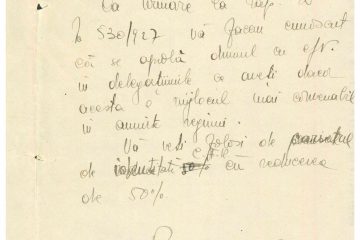 Ca urmare la rap.
No 530/927 vă facem cunoscut
că se aprobă drumul cu C.F.R.
în delegațiunile ce aveți dacă
acesta e mijlocul mai convenabil
în anumite regiuni.
Vă veți folosi de carnetul
de identitate C.F.R. cu reducerea
de 50%